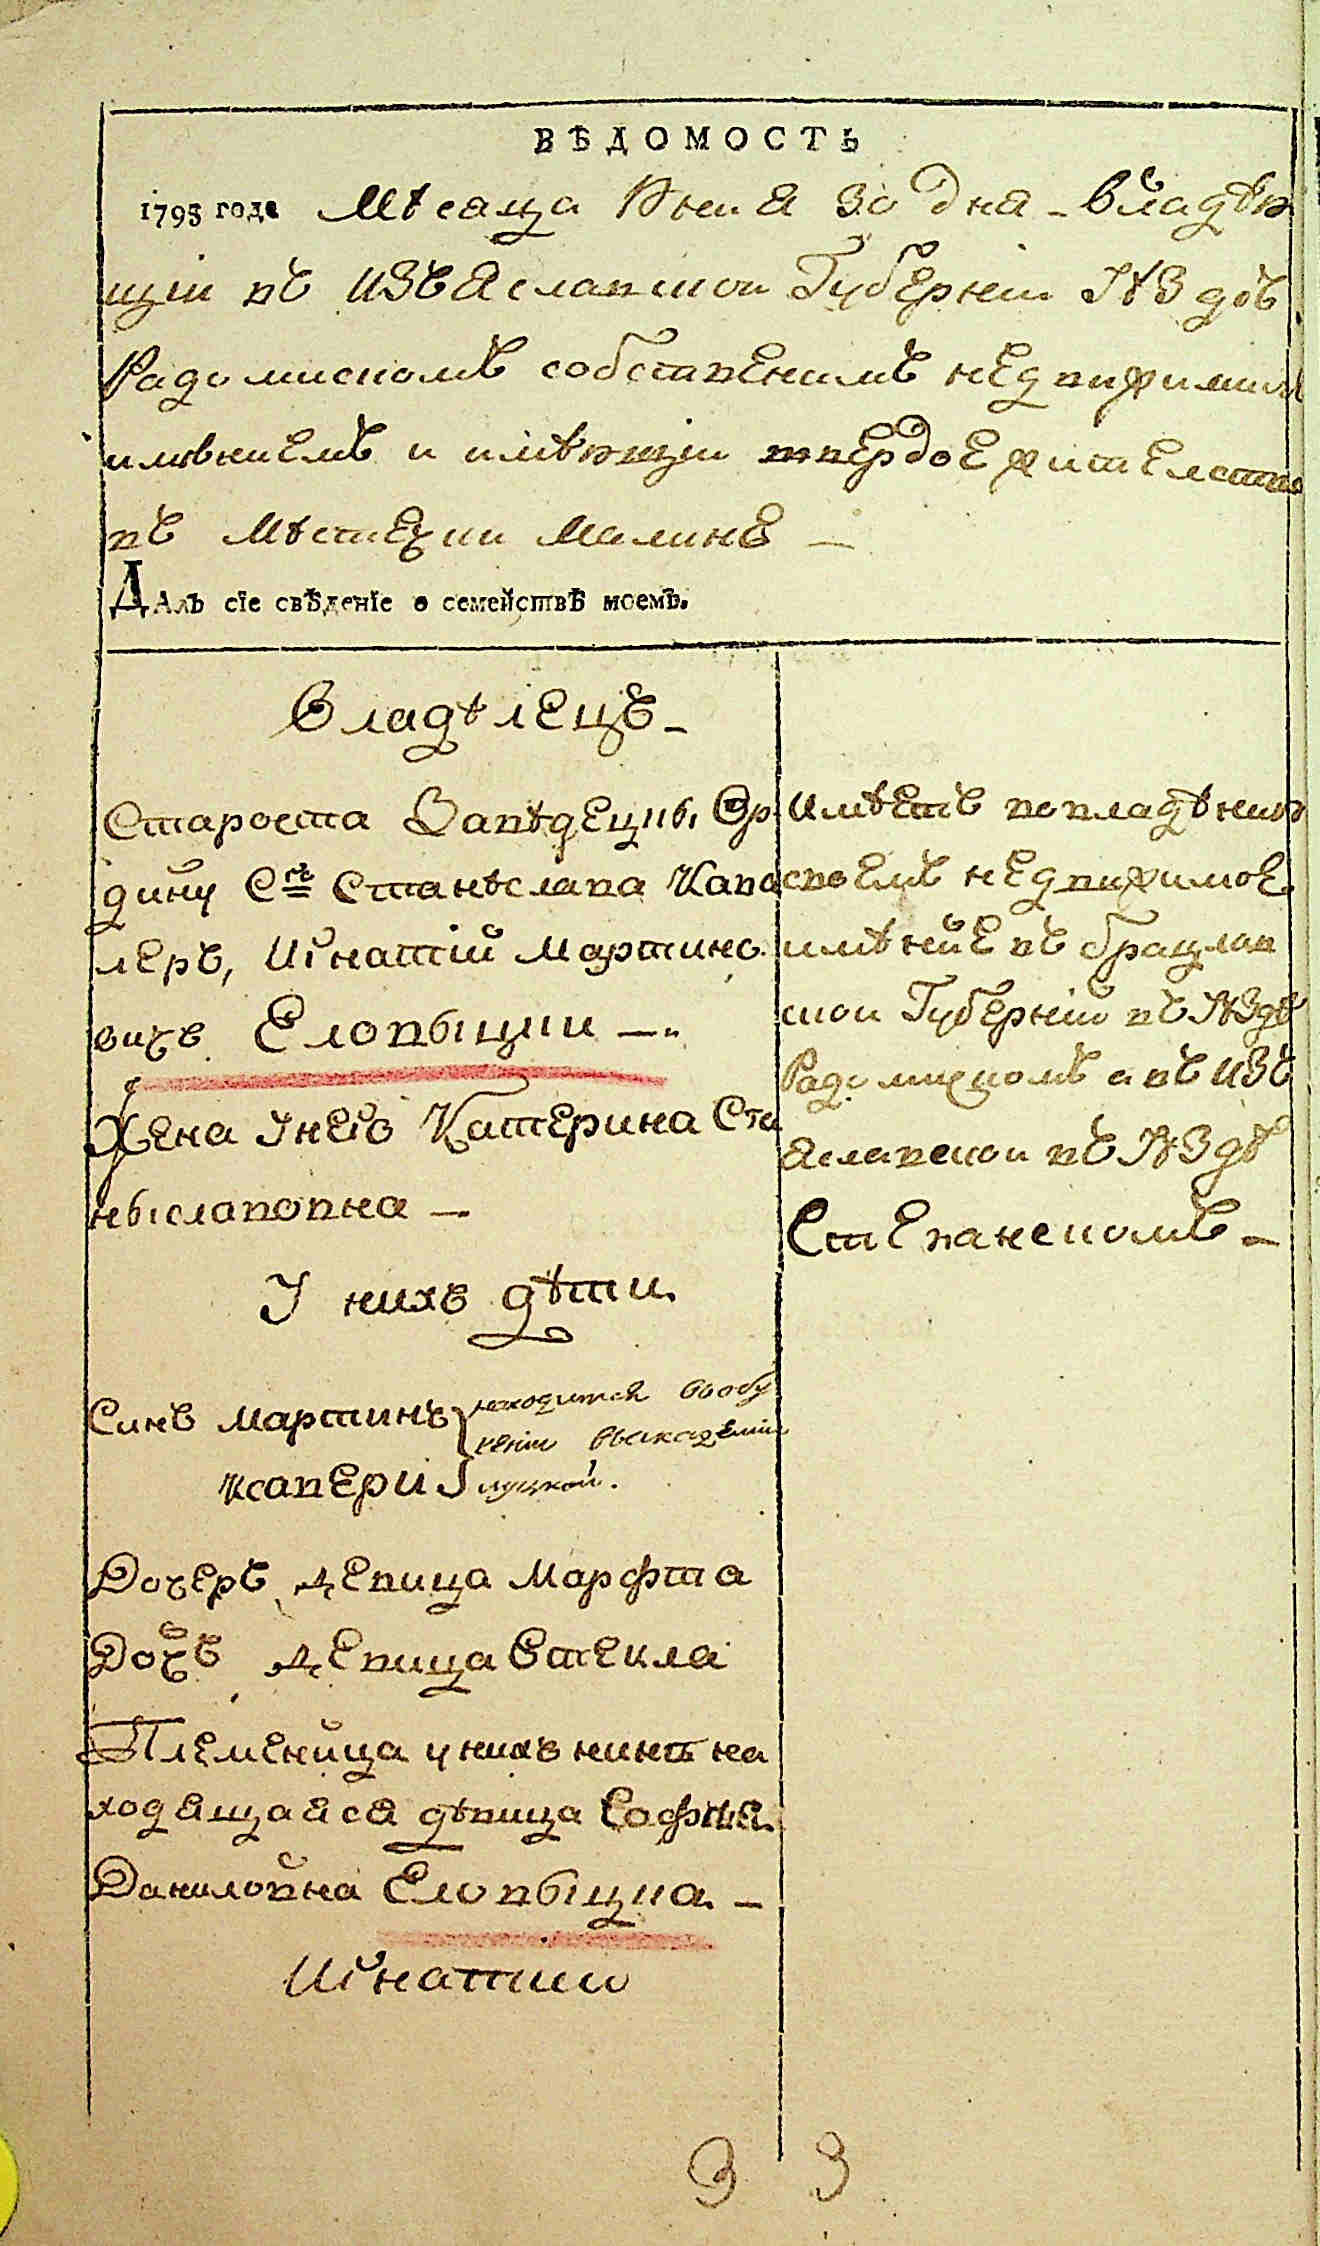 ВѢДОМОСТЬ
1795 года Мѣсаца Июня 30 Дня – Владѣю
щіи въ Изъяславской Губерніи Уѣздѣ
Радомискомъ собственимъ недвижимим
имѣниемъ и имѣющи твердое жителство
въ Мѣстечки Малинѣ –
Далъ сіе свѣденіе о семействѣ моемъ.
Владѣлецъ –
Староста Ор
дину Снъ Станѣслава Кава
леръ, Игнатій Мартино
вичъ Еловыцкии –
Жена Унего Катерина Ста
ныславовна –
У нихъ дѣти
Синъ Мартинъ находится вообу
чении вьакадемии
Ксаверии луцкой.
Дочеръ девица Марфта
Дочъ девица Стекла
Племеница у нихъ нинѣ на
ходящаяся дѣвица София
Даниловна Еловыцка –
Игнатии
Имѣетъ вовладѣнию
своемъ недвижимое
имѣние въ брацлав
скои Губерніи въ Уѣздѣ
Радомискомъ а въ Изъ
яславской въ Уѣздѣ
Степанскомъ –
3 3